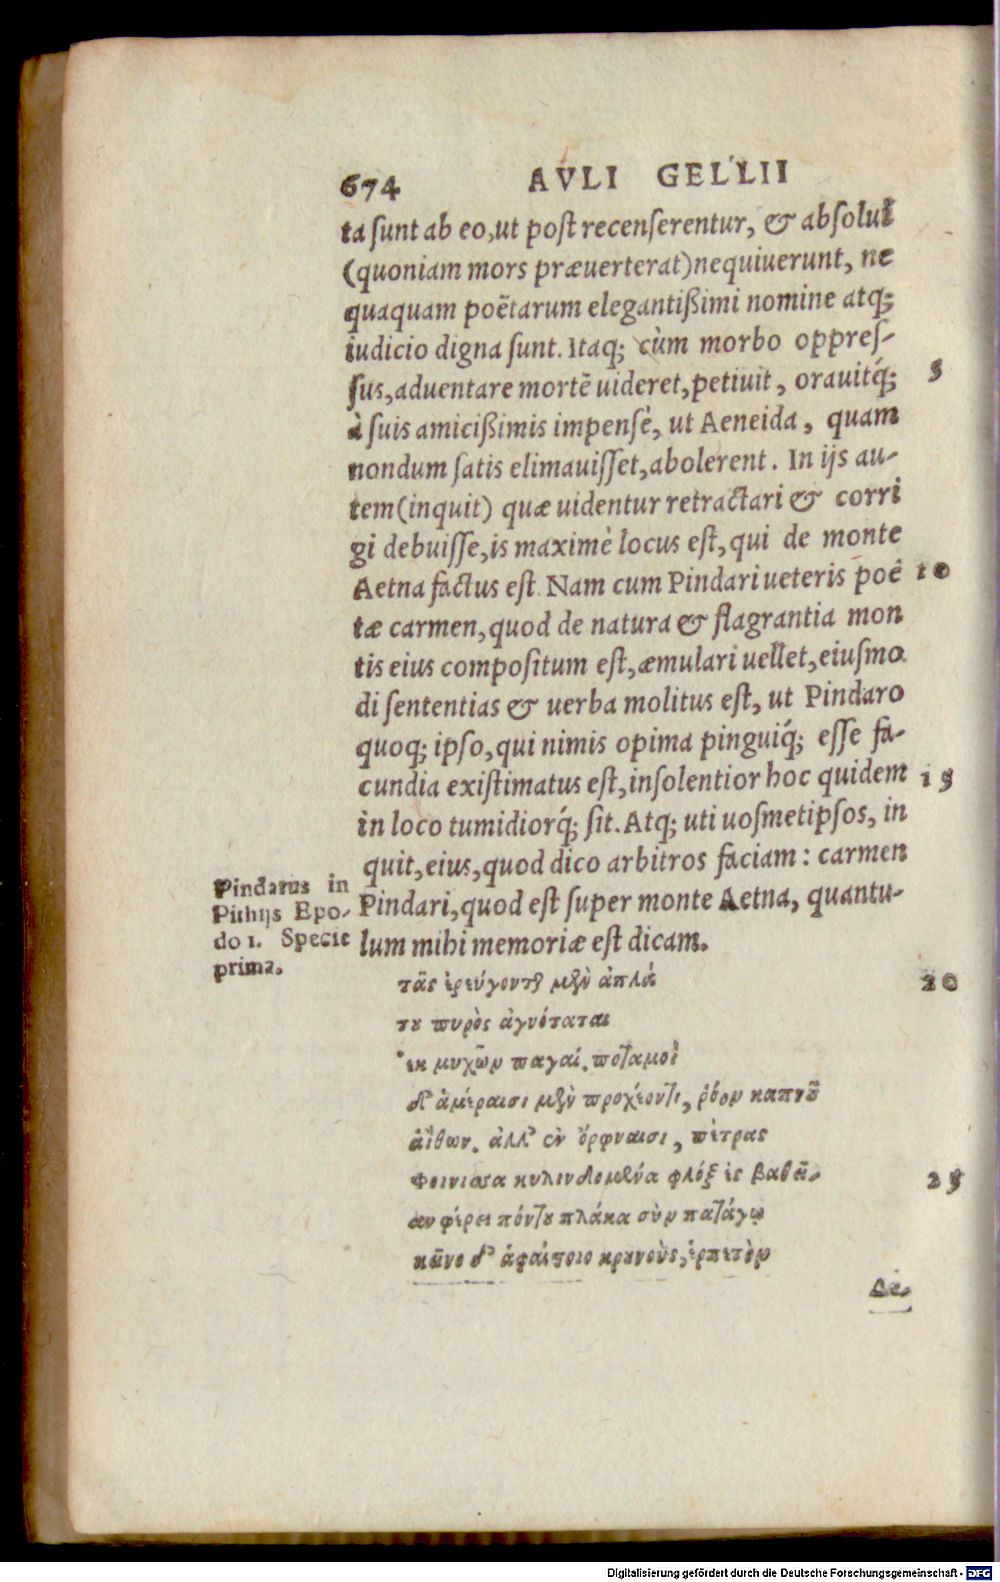 674 AVLI GELLII
ta sunt ab eo, ut post recenserentur, & absolui
(quoniam mors præuerterat) nequiuerunt, ne
quaquam poẽtarum elegantißimi nomine atq;
iudicio digna sunt. Itaq; cùm morbo oppres-
sus, aduentare mortẽ uideret, petiuit, orauitq́;
à suis amicißimis impensè, ut Aeneida, quam
nondum satis elimauisset, abolerent. In ijs au-
tem (inquit) quæ uidentur retractari & corri
gi debuisse, is maximè locus est, qui de monte
Aetna factus est. Nam cum Pindari ueteris poë
tæ carmen, quod de natura & flagrantia mon
tis eius compositum est, æmulari uellet, eiusmo
di sententias & uerba molitus est, ut Pindaro
quoq; ipso, qui nimis opima pinguiq́; esse fa-
cundia existimatus est, insolentior hoc quidem
in loco tumidiorq́; sit. Atq; uti uosmetipsos, in
quit, eius, quod dico arbitros faciam: carmen
Pindari, quod est super monte Aetna, quantu-
lum mihi memoriæ est dicam.
5
10
15
20
25
Pindarus in
Pithijs Epo-
do 1. Specie
prima.
τᾶς ἐρεύγονται μὲν ἀπλά
του πυρὸς ἁγνόταται
ἐκ μυχῶν παγαί. ποταμοὶ
δ᾽ ἁμέραισι μὲν προχέοντι, ῥόον καπνοῦ
αἴθων. ἀλλ᾽ ἐν ὄρφναισι, πέτρας
φοίνισσα κυλινδομένα φλὸξ ἐς βαθεῖ-
αν φέρει πόντου πλάκα σὺν πατάγῳ
κεῖνο δ᾽ ἁφαίστοιο κρουνοὺς, ἑρπετὸν
δει-
Digitalisierung gefördert durch die Deutsche Forschungsgemeinschaft - DFG